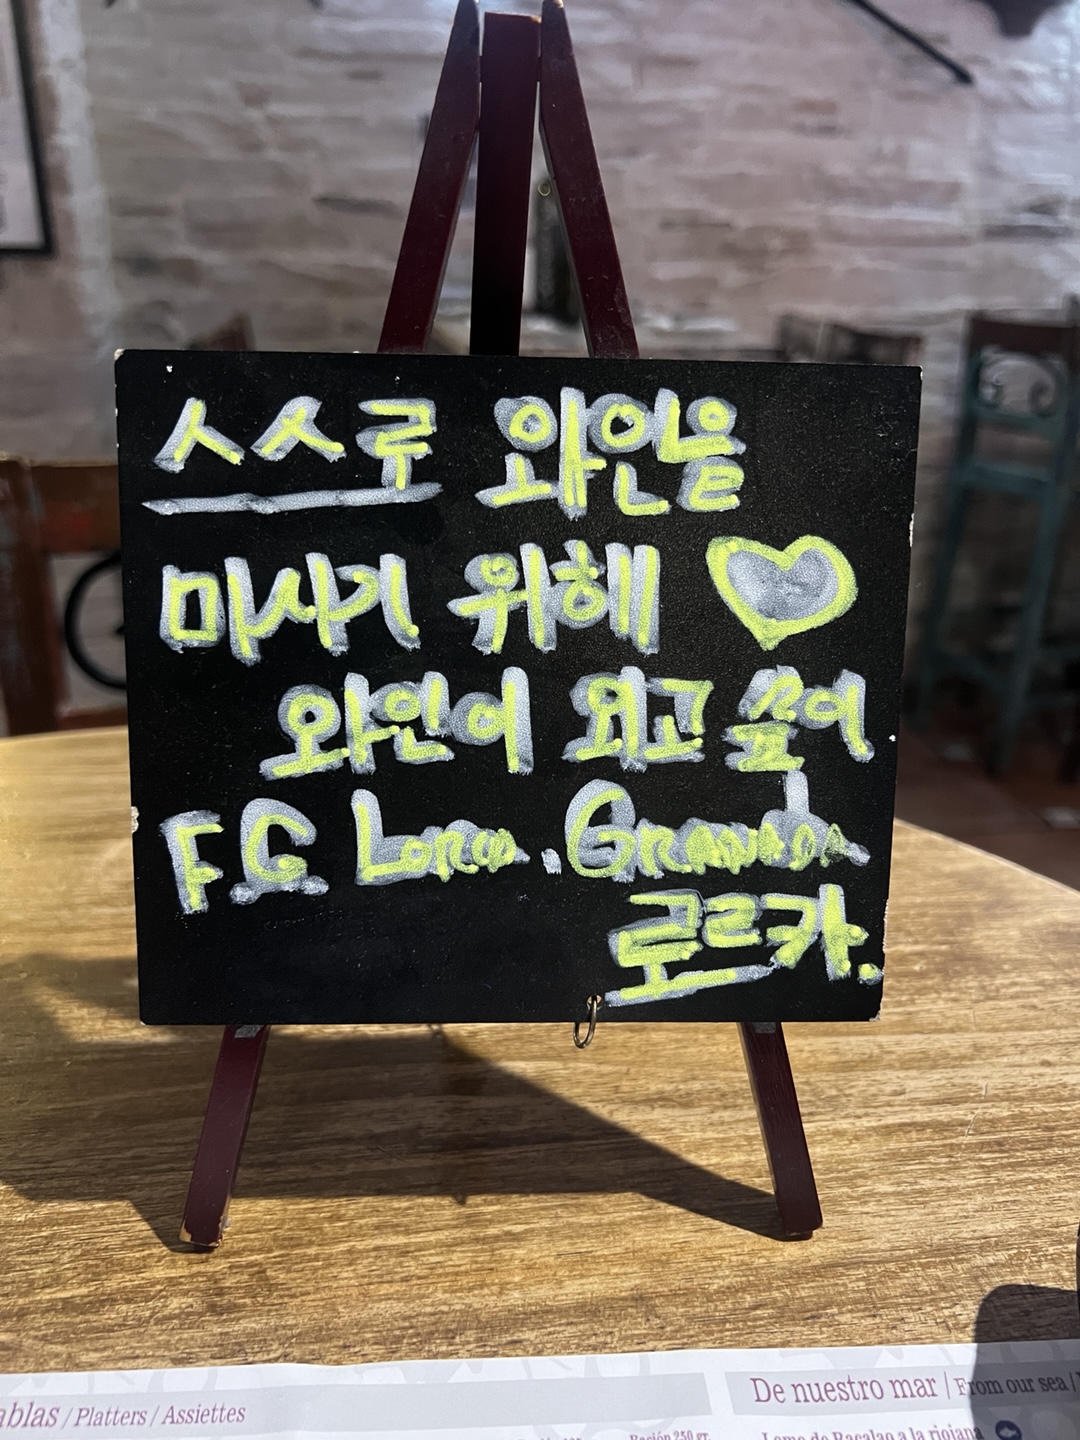 스스로 와인을
마시기 위해
와인이 되고 싶어
F.G Lorca. Granada
로르카.
ablas / Platters / Assiettes
De nuestro mar | From our sea /
Ración 250 gr.
Lomo de Bacalao a la riojana